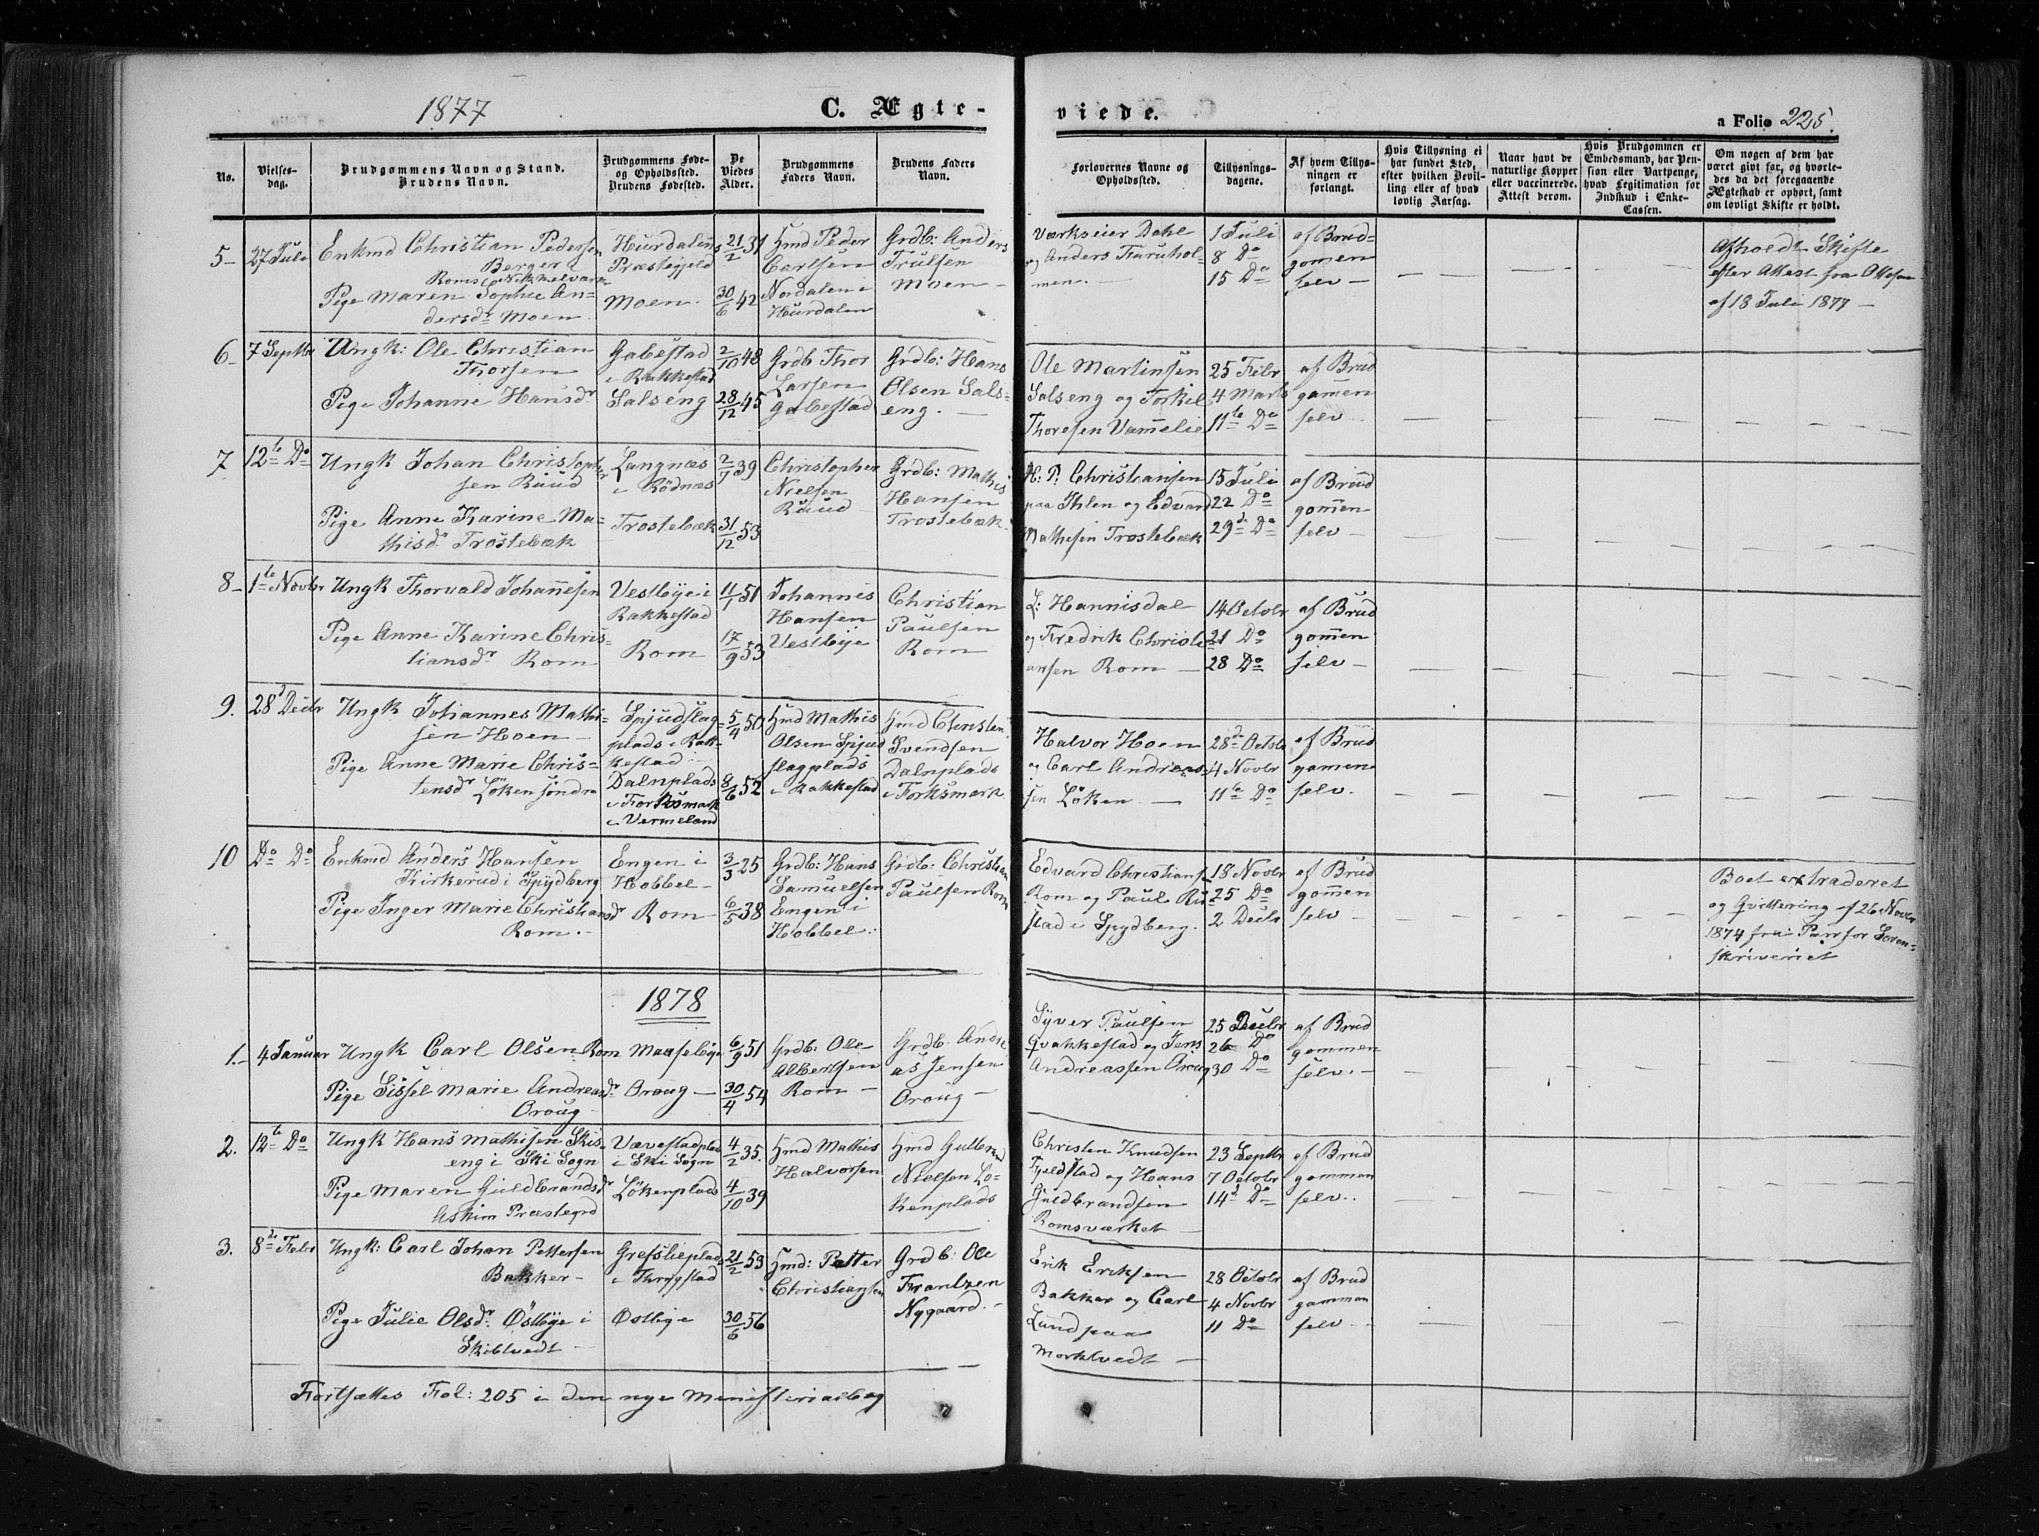 1877
C. Ægte-
viede.
a Folio 225.
No.
Vielses-
dag.
Brudgommens Navn og Stand.
Brudens Navn.
Brudgommens Føde-
og Opholdssted.
Brudens Fødested.
De
Viedes
Alder.
Brudgommens
Faders Navn.
Brudens Faders
Navn.
Forlovernes Navne og
Opholdssted.
Tillysnings-
dagene.
Af hvem Tillys-
ningen er
forlangt.
Hvis Tillysning ei
har fundet Sted,
efter hvilken Bevil-
ling eller af hvad
lovlig Aarsag.
Naar havt de
naturlige Kopper
eller vaccinerede.
Attest derom.
Hvis Brudgommen er
Embedsmand, har Pen-
sion eller Vartpenge,
hvad Legitimation for
Indskud i Enke-
Cassen.
Om nogen af dem har
været gift før, og hvorle-
des da det foregaaende
Ægteskab er ophørt, samt
om lovligt Skifte er holdt.
5-
27 Juli
Enkmd Christian Pedersen
Berger
Roms Nikkelværk
Pige Maren Sophie An-
dersdr Moen
Hurdalens
Præstegjeld
Moen.
21/2 31
30/6 42
Hmd Peder
Carlsen
Nordalen i
Hurdalen
Grdb: Anders
Trulsen
Moen-
Værkseier Dahl
og Anders Furuhol-
men.-
1 Juli
8 Do
15 Do
af Brud-
gomen
selv-
Afholdt Skifte
efter Attest fra
af 18 Juli 1877-
6-
7 Septbr
Ungk: Ole Christian
Thorsen
Pige Johanne Hansdr
Gabestad
i Rakkestad
Salseng
2/10 48
28/12 45
Grdb Thor
Larsen
Gabestad
Grdb: Hans
Olsen Sals-
eng.-
Ole Martinsen
Salseng og Torkil
Thoresen Vammelie
25 Febr
4 Marts
11te Do
af Brud
gomen
selv..
7
12te Do
Ungk Johan Christoph
sen Ruud
Pige Anne Karine Ma-
thisdr Trostebæk
Langnæs
i Rödnæs
Trostebæk
2/7 39
31/12 53
Christopher
Nielsen
Ruud
Grdb: Mathis
Hansen
Trostebæk.
H: P. Christiansen
paa Ihlen og Edvard
Mathisen Trostebæk
15 Juli
22 Do
29de Do
af Brud
gomen
selv-
8-
1te Novbr
Ungk Thorvald Johannesen
Pige Anne Karine Chris-
tiansdr Rom
Vestbye i
Rakkestad
Rom
11/1 51
17/9 53
Johannes
Hansen
Vestbye
Christian
Paulsen
Rom
L: Hannisdal
og Fredrik Christi
ansen Rom-
14 Octobr
21 Do
28 Do
af Brud
gomen
selv-
9.
28d Decbr
Ungk Johannes Mathi-
sen Hoen-
Pige Anne Marie Chris-
tensdr Löken söndre
Spjudslag-
plads i Rak-
kestad
Dalnplads
i Torksmark
i Vermeland
5/4 50
8/6 52
Hmd Mathis
Olsen Spjud
slagplads
i Rakkestad
Hmd Christen
Svendsen
Dalnplads
i Torksmark
Halvor Hoen
og Carl Andreas-
sen Löken.-
28de Octobr
4 Novbr
11te Do
af Brud
gomen
selv.
10
Do Do
Enkmd Anders Hansen
Kirkerud i Spydberg
Pige Inger Marie Christiansdr
Rom.-
Engen i
Hobbel-
Rom-
3/3 25
6/5 38
Grdb: Hans
Samuelsen
Engen i
Hobbel.
Grdb: Christian
Paulsen Rom
Edvard Christians
Rom og Paul Ru-
stad i Spydberg.
18 Novbr
25 Do
2 Decbr
af Brud
gomen
selv-
Boet extraderet
og Qvittering af 26 Novbr
1874 fra for Soren-
skriveriet
1878
1.-
4 Januar
Ungk Carl Olsen Rom
Pige Sissel Marie Andreasdr
Oroug-
Maaseby
Oroug-
6/9 51
30/4 54
Grdb: Ole
Albertsen
Rom-
Grdb. Andre
as Jensen
Oroug-
Syver Paulsen
Qvakkestad og Jens
Andreassen Oroug
25 Decbr
26 Do
30 Do
af Brud
gommen
selv.-
2.
12te Do
Ungk Hans Mathisen Skis-
eng i Ski Sogn
Pige Maren Guldbrandsdr
Askim Præstegd
Vævestadplads
i Ski Sogn
Lökenplads
4/2 35.
4/10 39
Hmd Mathis
Halvorsen
Hmd Gulbrand
Nielsen Lö-
kenplads
Christen Knudsen
Fjeldstad og Hans
Guldbrandsen
Romsværket-
23 Septbr
7 Octobr
14d Do
af Brud
gommen
selv..
3.
8de Febr
Ungk: Carl Johan Pettersen
Bakker-
Pige Julie Olsdr. Östbye i
Skibtvedt-
Grefslieplads
i Thrygstad
Östbye
21/2 53
30/6 56
Hmd: Petter
Christiansen
Grdb: Ole
Frantzen
Nygaard.-
Erik Eriksen
Bakker og Carl
Lund paa
Morktvedt-
28 Octobr
4 Novbr
11 Do
af Brud
gammen
selv-
Fortsættes Fol: 205 i den nye Ministerialbog